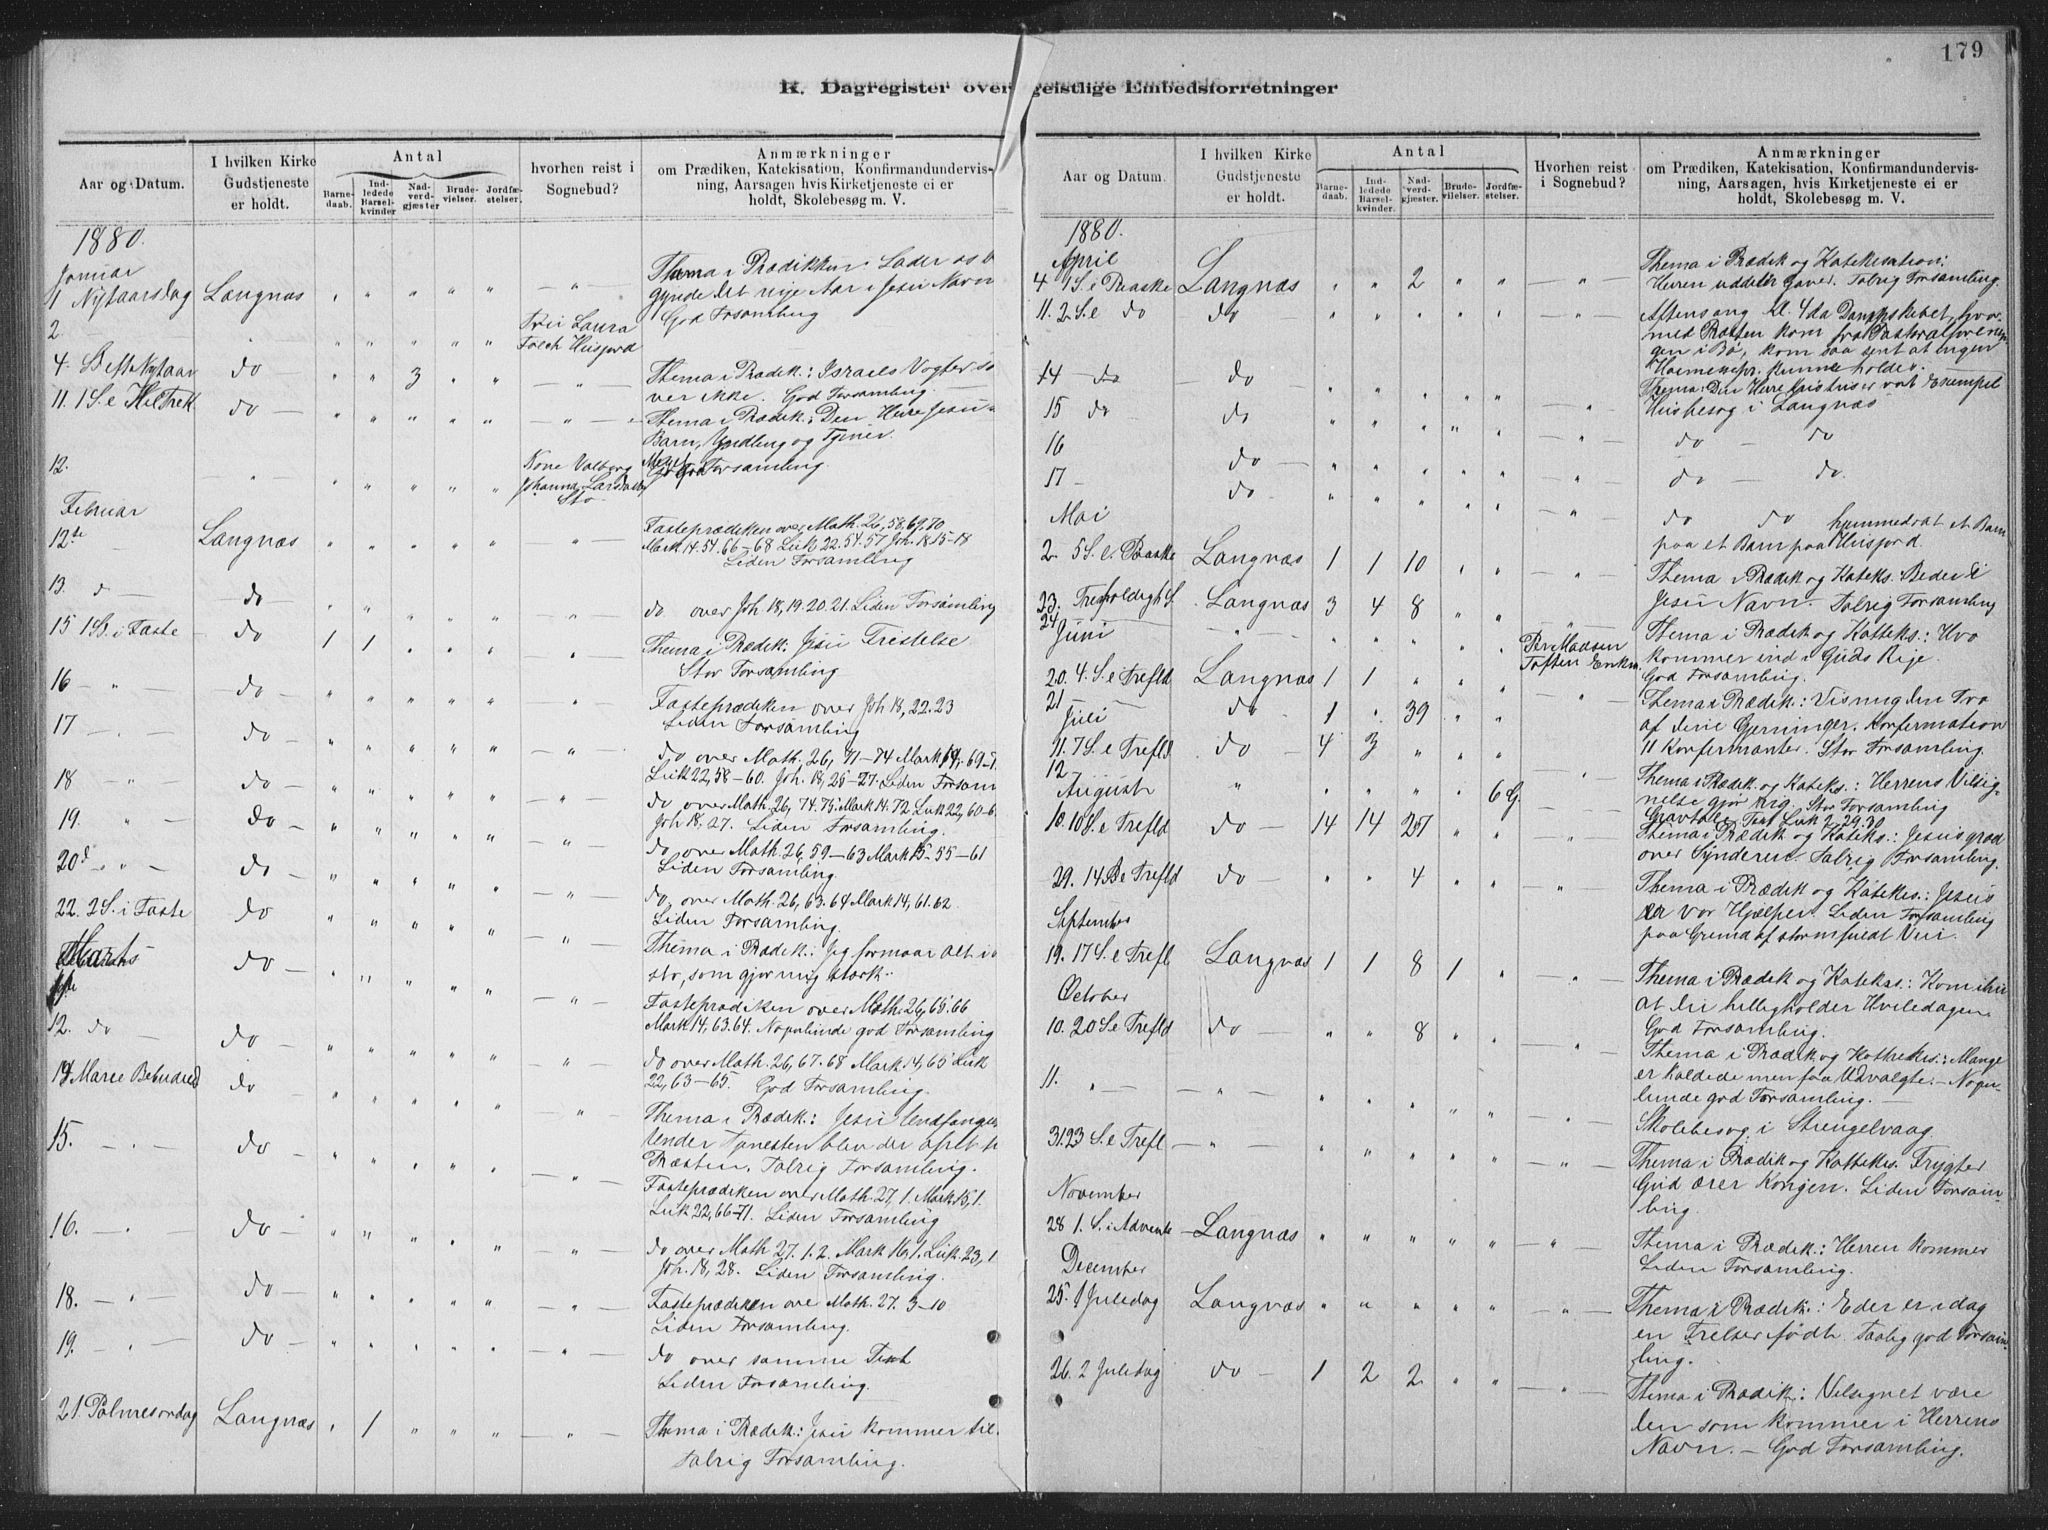 179
K. Dagregister over geistlige Embedsforretninger
Aar og Datum.
I hvilken Kirke
Gudstjeneste
er holdt.
Antal
Barne-
daab.
Ind-
ledede
Barsel-
kvinder
Nad-
verd-
gjæster
Brude-
vielser.
Jordfæ-
stelser.
hvorhen reist i
Sognebud?
Anmærkninger
om Prædiken, Katekisation, Konfirmandundervis-
ning, Aarsagen hvis Kirketjeneste ei er
holdt, Skolebesøg m. V.
1880.
Januar
1 Nytaarsdag Langnæs " " " " " — " — Thema i Prædikken: Lader os b
gynde det nye Aar i Jesu Navn
God Forsamling
2. " " " " " Laura
Husjord
4. S. eft Nytaar do " " 3 " " — " — Thema i Prædik: Israels Vogter so
ver ikke. God Forsamling
11. 1 S. e HelTrek do " " " " " — " — Thema i Prædik: Den Herre Jesu
Barn, Yndling og Tjener.
God Forsamling.
12. " " " " " " Kone Valborg
Johanna
Stø
Februar
12te Langnæs " " " " " — " — Fasteprædiken over Math. 26, 58, 69. 70
Mark 14. 54. 66–68 Luk 22. 54. 57 Joh. 18 15–18
Liden Forsamling
13. do " " " " " — " — do over Joh. 18, 19. 20. 21. Liden Forsamling
15 1 S. i Faste do 1 1 " " " — " — Thema i Prædik: Jesu Fristelse
Stor Forsamling
16 — " — do " " " " " — " — Fasteprædiken over Joh 18, 22. 23
Liden Forsamling
17 — " — do " " " " " — " — do over Math. 26, 71–74 Mark 14, 69–7
Luk 22, 58–60. Joh. 18, 25–27. Liden Forsam
18 " do " " " " " — " — do over Math. 26, 74. 75 Mark 14. 72 Luk 22, 60–6
Joh 18, 27. Liden Forsamling.
19. " do " " " " " — " — do over Math. 26, 59–63 Mark 15–55–61
Liden Forsamling.
20d " do " " " " " — " — do over Math. 26, 63. 64 Mark 14, 61. 62
Liden Forsamling.
22. 2 S. i Faste do " " " " " — " — Thema i Prædik: Jeg formaar alt i
som gjør mig stærk.
Marts
do " " " " " Fasteprædiken over Math. 26, 65. 66
Mark 14, 63. 64. Nogenlunde god Forsamling
12. do do " " " " " — " — do over Math. 26, 67. 68 Mark 14, 65 Luk
22, 63–65. God Forsamling.
14 Marie Bebudel do " " " " " — " — Thema i Prædik: Jesu Undfangel
under
Præsten. Talrig Forsamling.
15. — " — do " " " " " — " — Fasteprædiken over Math. 27, 1. Mark 15, 1.
Luk 22, 66–71. Liden Forsamling
16. — " — do " " " " " — " — do over Math 27. 1. 2. Mark 15, 1. Luk. 23, 1
Joh. 18, 28. Liden Forsamling.
18. — " — do " " " " " — " — Fasteprædiken ove Math. 27. 3–10
Liden Forsamling.
19. — " — do " " " " " — " — do over samme Text
Liden Forsamling.
21 Palmesøndag Langnæs " 1 " " " — " — Thema i Prædik: Jesu kommer til
Talrig Forsamling.
Aar og Datum.
I hvilken Kirke
Gudstjeneste
er holdt.
Antal
Barne-
daab.
Ind-
ledede
Barsel-
kvinder.
Nad-
verd-
gjester.
Brude-
vilelser.
Jordfæ-
stelser.
Hvorhen reist
i Sognebud?
Anmærkninger
om Prædiken, Katekisation, Konfirmandundervis-
ning, Aarsagen, hvis Kirketjeneste ei er
holdt, Skolebesøg m. V.
1880.
April
4 1 S. e Paaske Langnæs " " 2 " " — " — Thema i Prædik og Katekisation:
Herren uddeler Gaver. Talrig Forsamling.
11. 2 S. e do do " " " " " — " — Aftensang Kl. 4 da Dampskibet, hvor
med Præsten kom fra Pastoral
gen i Bø, kom saa sent at ingen
kunne holdes.
Thema: Den Herre Kristus er vort Exempel
14 — do — do " " " " " — " Husbesøg i Langnæs
15 do do " " " " " — " — do — do
16 do " " " " " — " — do — do.
17 — do " " " " " — " — do do hjemmedøbt et Barn
paa et Barn paa Husjord.
Mai
2. 5 S. e. Paaske Langnæs 1 1 10 " " — " — Thema i Prædik og Kateks: Beder i
Jesu Navn. Talrig Forsamling
23. Trefoldigh S. Langnæs 3 4 8 " " — " — Thema i Prædik og Kateks.: Hvo
kommer ind i Guds Rige.
God Forsamling.
24 — " — " " " " " Per Madsen
Toften
Juni
20. 4. S. e Trefld Langnæs 1 1 " " " — " — Thema i Prædik.: Vis mig din Tro
af dine Gjerninger. Konfirmation
11 Konfirmanter. Stor Forsamling.
21 do 1 " 39 " "
Juli
11. 7 S. e Trefld do 4 3 " " " — " — Thema i Prædik. og Kateks.: Herrens Velsig-
nelse gjør rig. Stor Forsamling
12 " " " " " 6 G. Gravtale Text Luk 2, 29. 30
August
10. 10 S. e Trefld do 14 14 27 " " — " — Thema i Prædik og Kateks.: Jesus graad
over Synderen. Talrig Forsamling.
29. 14 S e Trefld do " " 4 " " — " — Thema i Prædik og Kateks.: Jesus
er vor Hjælper. Liden Forsamling
paa Grund af stormfuldt Veir.
September
19. 17 S. e Trefl Langnæs 1 1 8 1 " — " — Thema i Prædik og Kateks.: Kom ihu
at du helligholder Hviledagen
God Forsamling.
October
10. 20 S. e Trefld do " " 8 " " — " — Thema i Prædik og Kathekis.: Mange
er kaldede men faa Udvalgte. Nogen-
lunde god Forsamling.
11. " — " — " " " " " — " — Skolebesøg i Strengelvaag.
31. 23 S. e Trefl — " — " " " " " — " — Thema i Prædik og Kattekes. Frygter
Gud ærer Kongen. Liden Forsam-
ling.
November
28 1. S. i Advente Langnæs " " " " " — " — Thema i Prædik.: Herren kommer
Liden Forsamling.
December
25. 1 Juledag Langnæs " " " " " — " — Thema i Prædik.: Eder er i dag
en Frelser født. god Forsam-
ling.
26. 2 Juledag do 1 2 2 " " — " — Thema i Prædik: Velsignet være
den som kommer i Herrens
Navn. — God Forsamling.